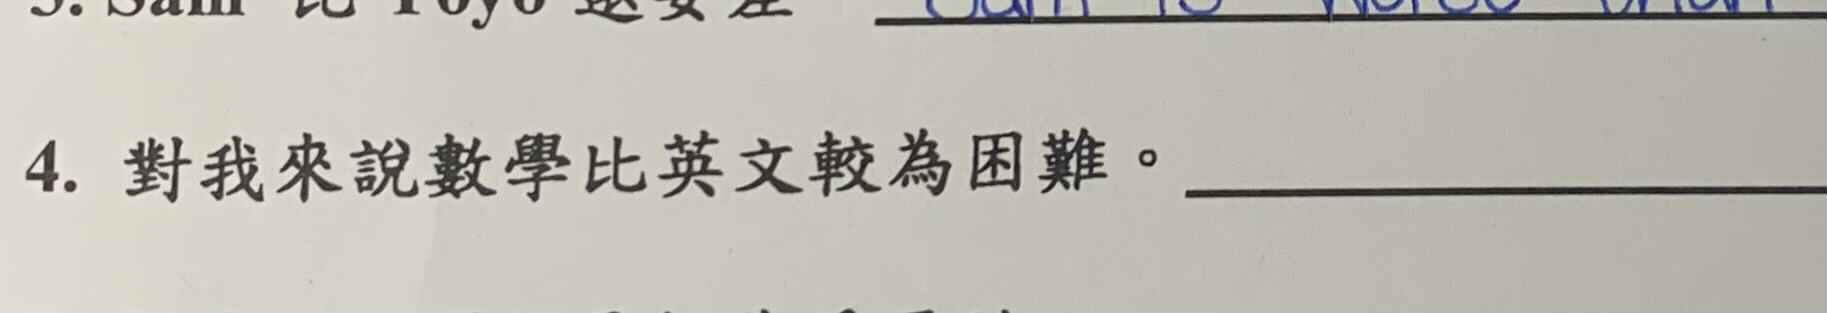 3. Sam 比 Toyo 還要差 Sam is worse than
4. 對我來說數學比英文較為困難。